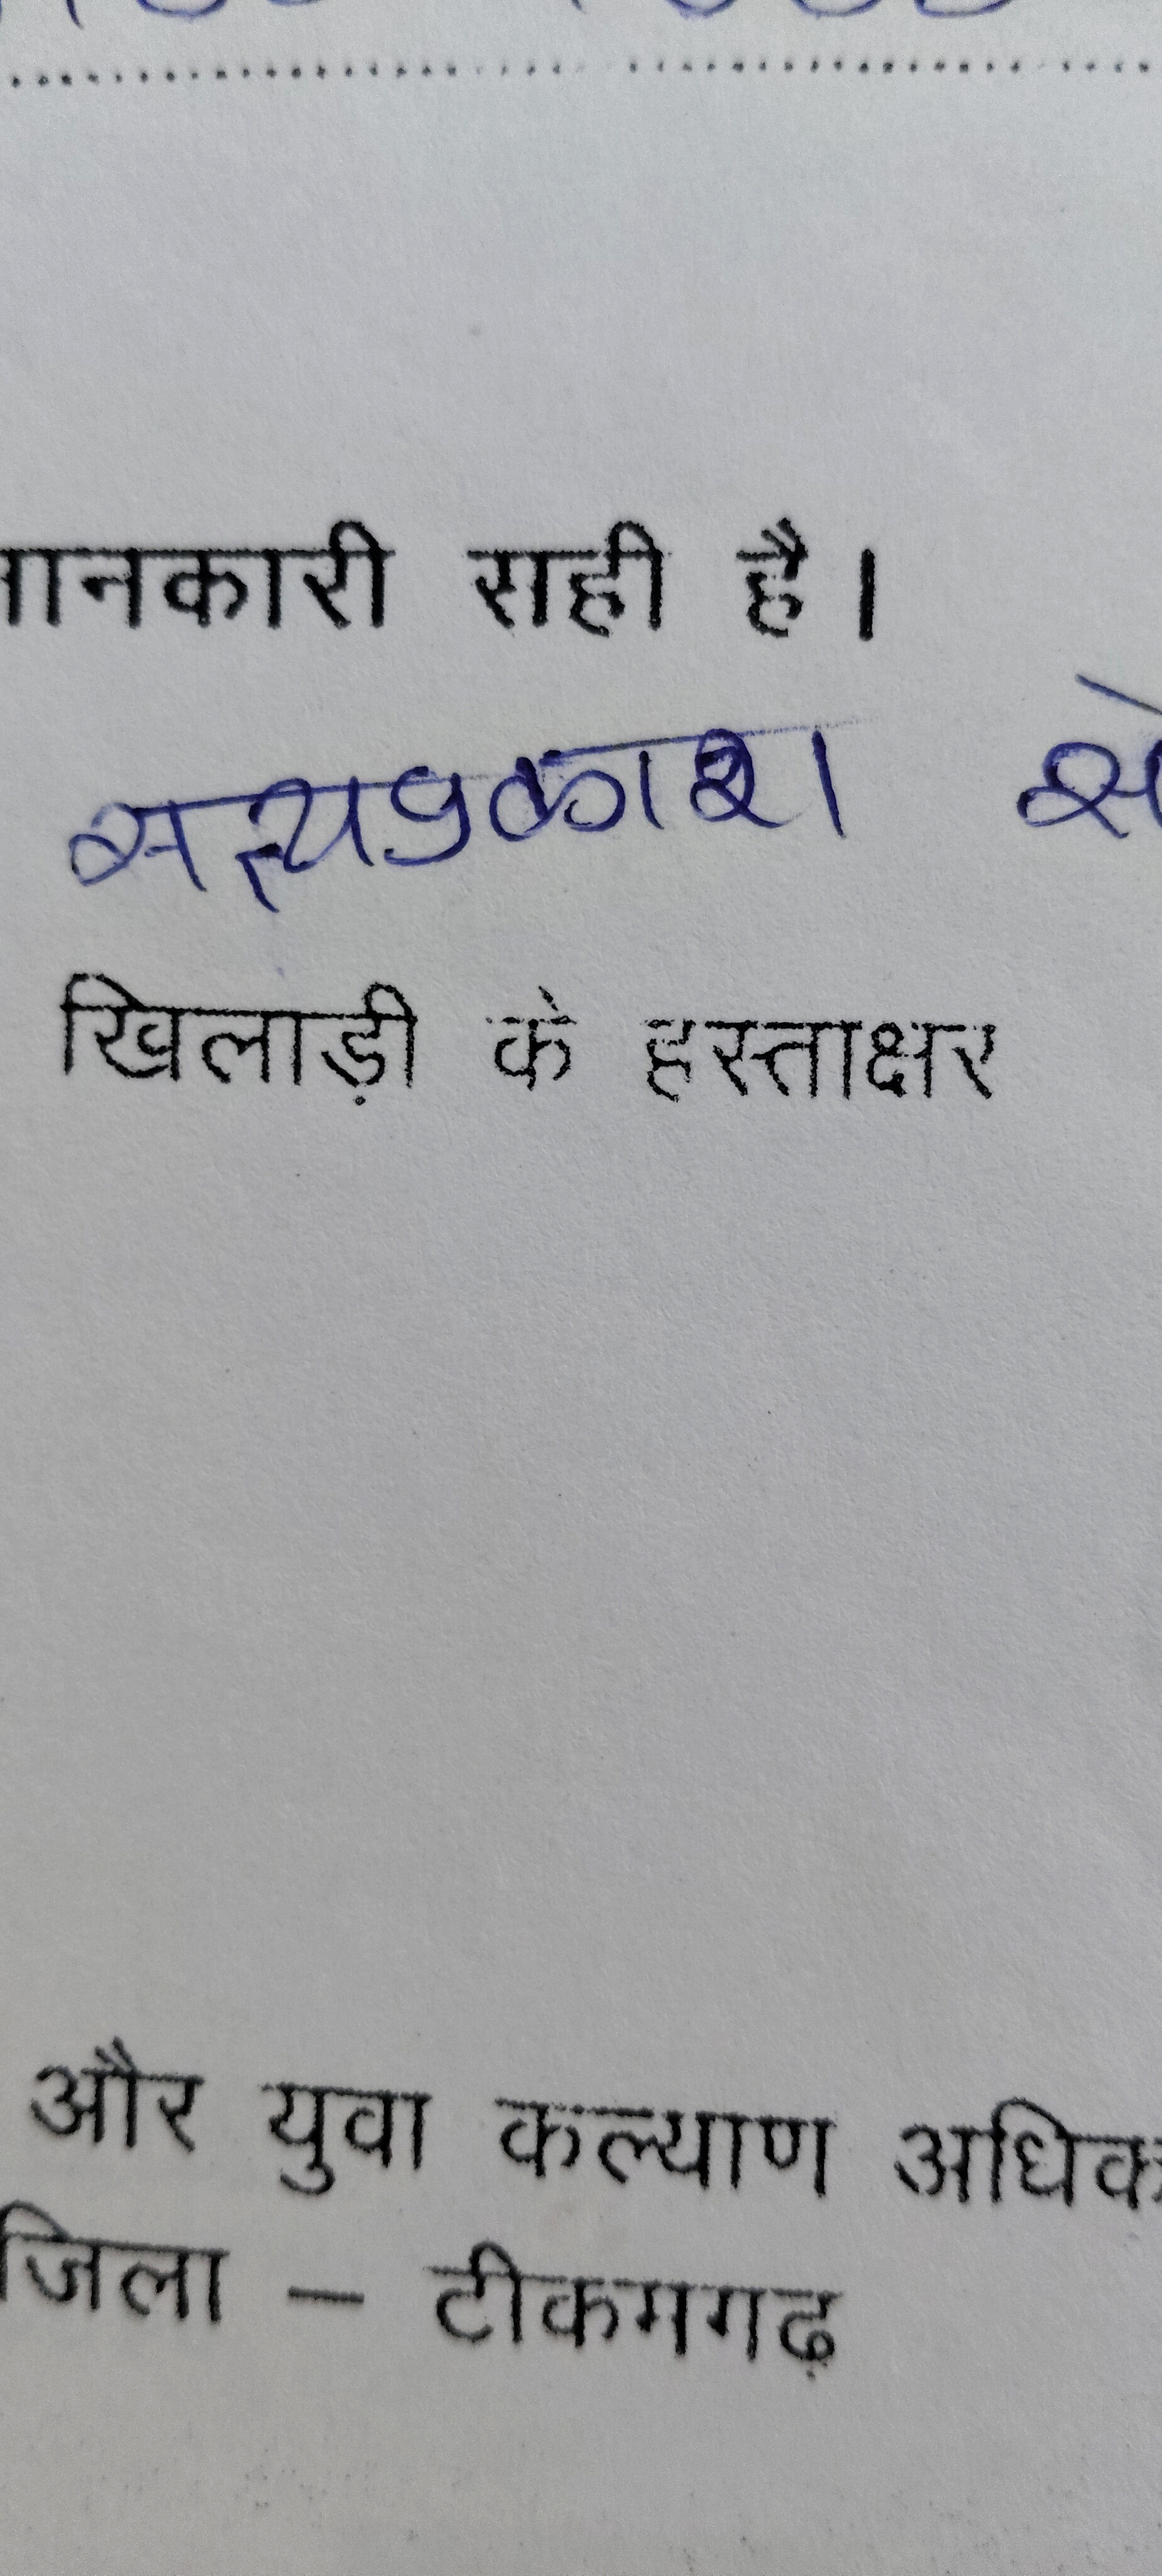 ानकारी सही है।
सत्यप्रकाश से
खिलाड़ी के हस्ताक्षर
और युवा कल्याण अधिक
जिला – टीकमगढ़